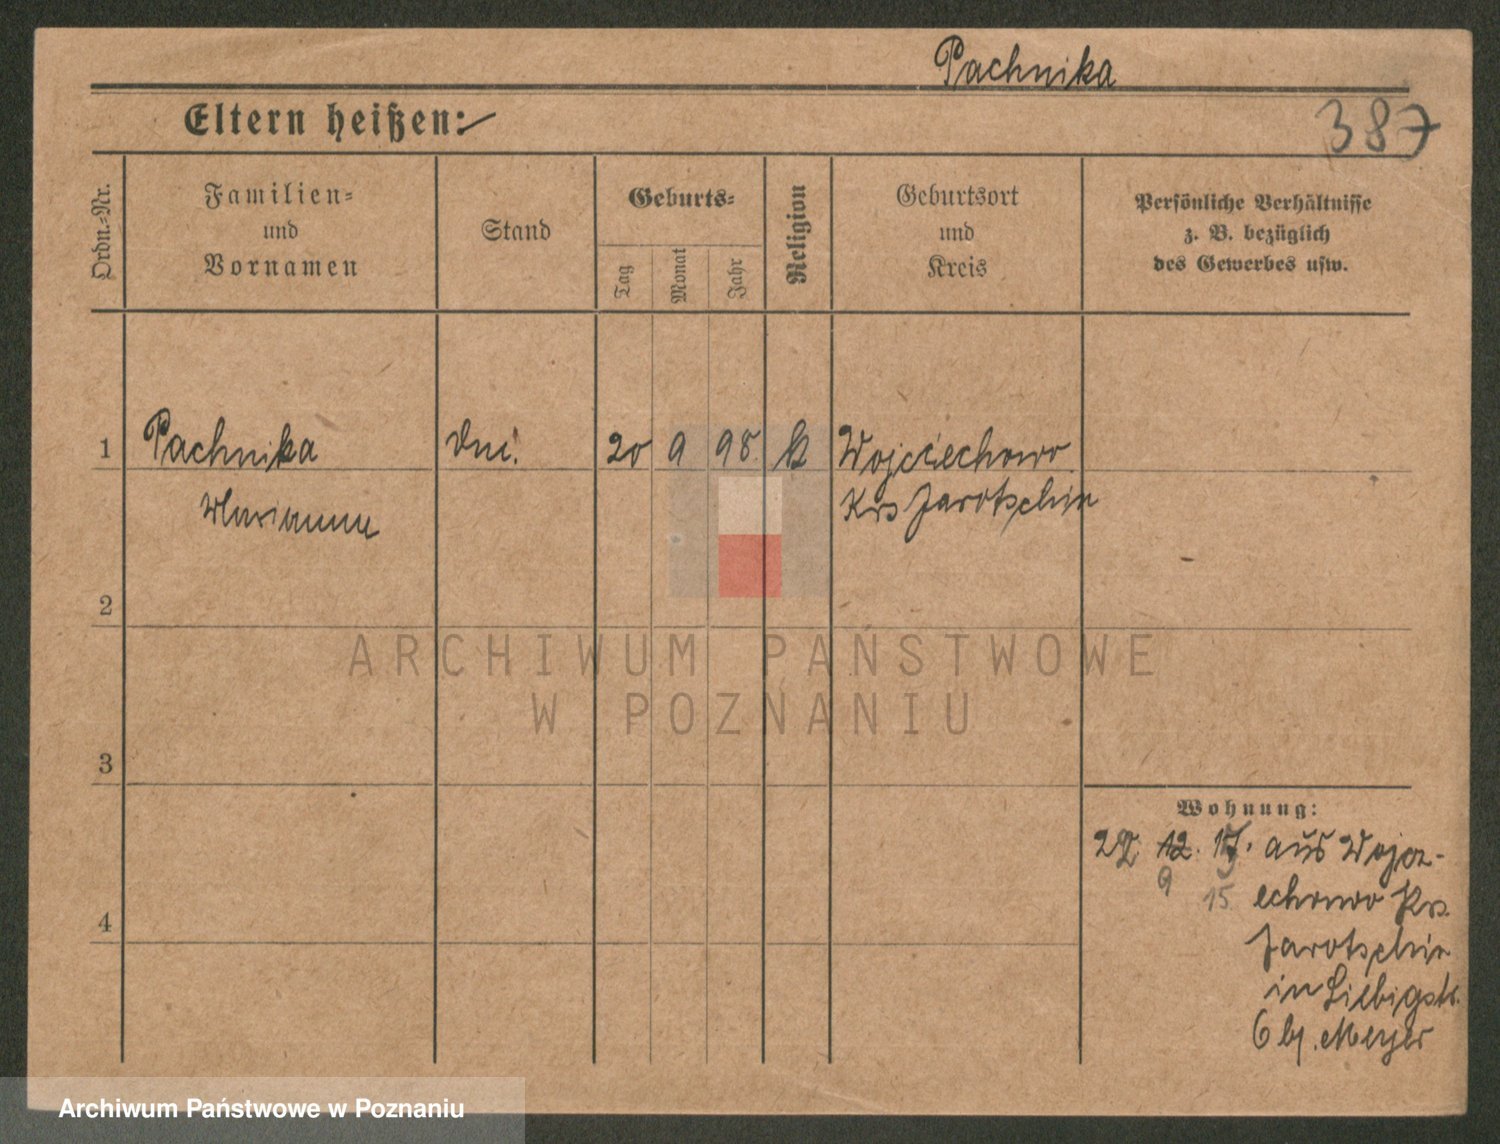 Pachnika
Eltern heißen:
387
Ordn.-Nr.
Familien-
und
Vornamen
Stand
Geburts-
Tag
Monat
Jahr
Religion
Geburtsort
und
Kreis
Persönliche Verhältnisse
z. B. bezüglich
des Gewerbes usw.
1 Pachnika 20 9 98 k Wojciechowo
Marianna Krs Jarotschin
2
3
4
Wohnung:
12. aus Wojcz-
9 15 echowo Krs.
Jarotschin
in Liebigstr.
6 bj. Meyer
ARCHIWUM PAŃSTWOWE
W POZNANIU
Archiwum Państwowe w Poznaniu